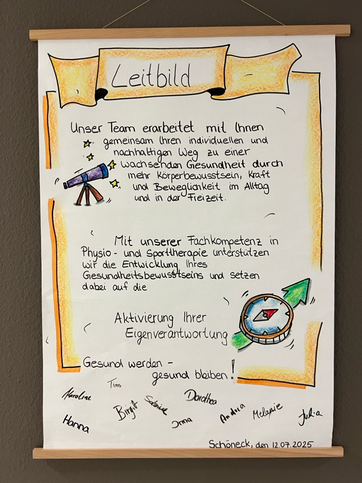 Leitbild
Unser Team erarbeitet mit Ihnen
gemeinsam Ihren individuellen und
nachhaltigen Weg zu einer
wachsenden Gesundheit durch
mehr Körperbewusstsein, Kraft
und Beweglichkeit im Alltag
und in der Freizeit.
Mit unserer Fachkompetenz in
Physio- und Sporttherapie unterstützen
wir die Entwicklung Ihres
Gesundheitsbewusstseins und setzen
dabei auf die
Aktivierung Ihrer
Eigenverantwortung
Gesund werden -
gesund bleiben!
Tim
Dorothea
Hanna
Birgit
Andrea
Melanie
Julia
Schöneck, den 12.07.2025